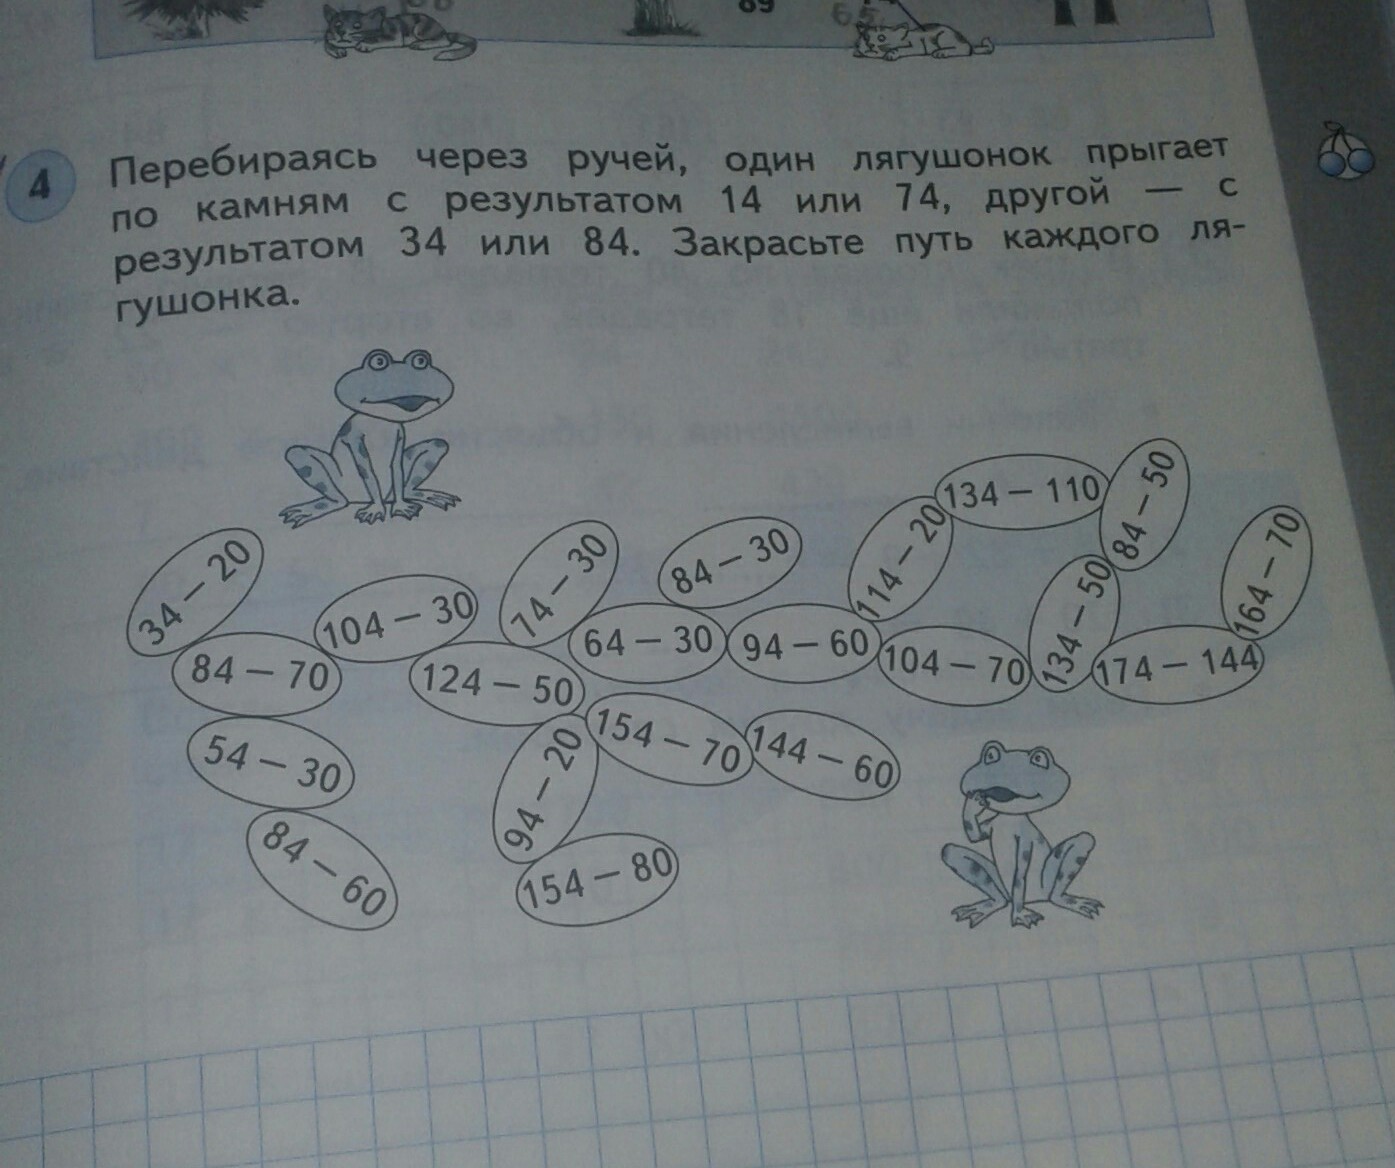 89
4
Перебираясь через ручей, один лягушонок прыгает
по камням с результатом 14 или 74, другой — с
результатом 34 или 84. Закрасьте путь каждого ля-
гушонка.
34 – 20
104 – 30
74 – 30
84 – 30
114 – 20
134 – 110
84 – 50
164 – 70
84 – 70
124 – 50
64 – 30
94 – 60
104 – 70
134 – 50
174 – 144
54 – 30
94 – 20
154 – 70
144 – 60
84 – 60
154 – 80